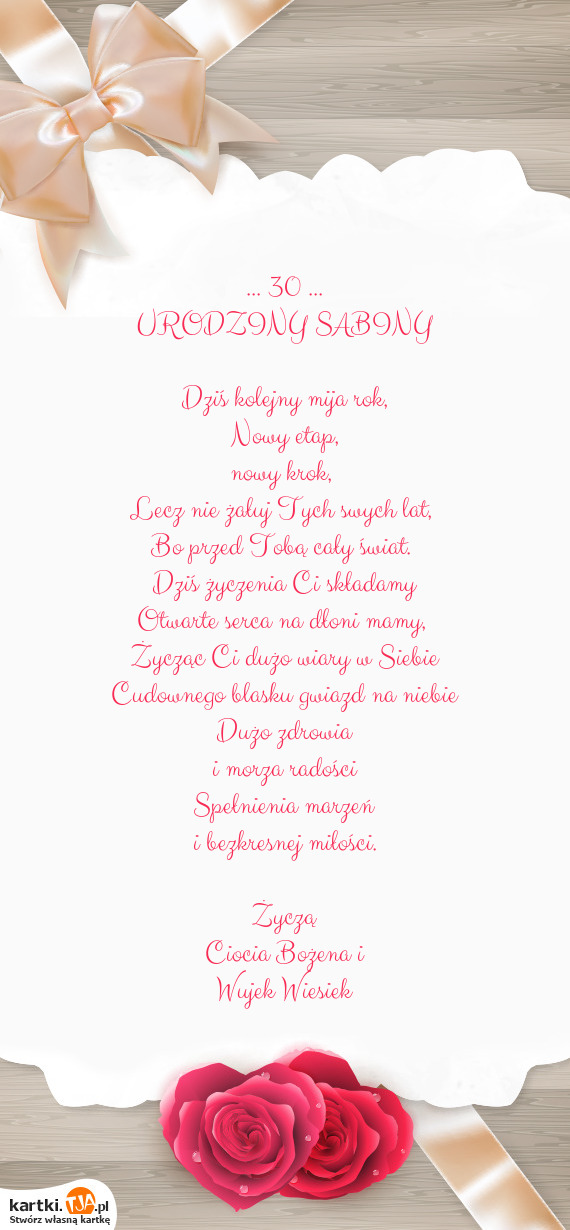 ... 30 ...
URODZINY SABINY
Dziś kolejny mija rok,
Nowy etap,
nowy krok,
Lecz nie żałuj Tych swych lat,
Bo przed Tobą cały świat.
Dziś życzenia Ci składamy
Otwarte serca na dłoni mamy,
Życząc Ci dużo wiary w Siebie
Cudownego blasku gwiazd na niebie
Dużo zdrowia
i morza radości
Spełnienia marzeń
i bezkresnej miłości.
Życzą
Ciocia Bożena i
Wujek Wiesiek
kartki.TJA.pl
Stwórz własną kartkę